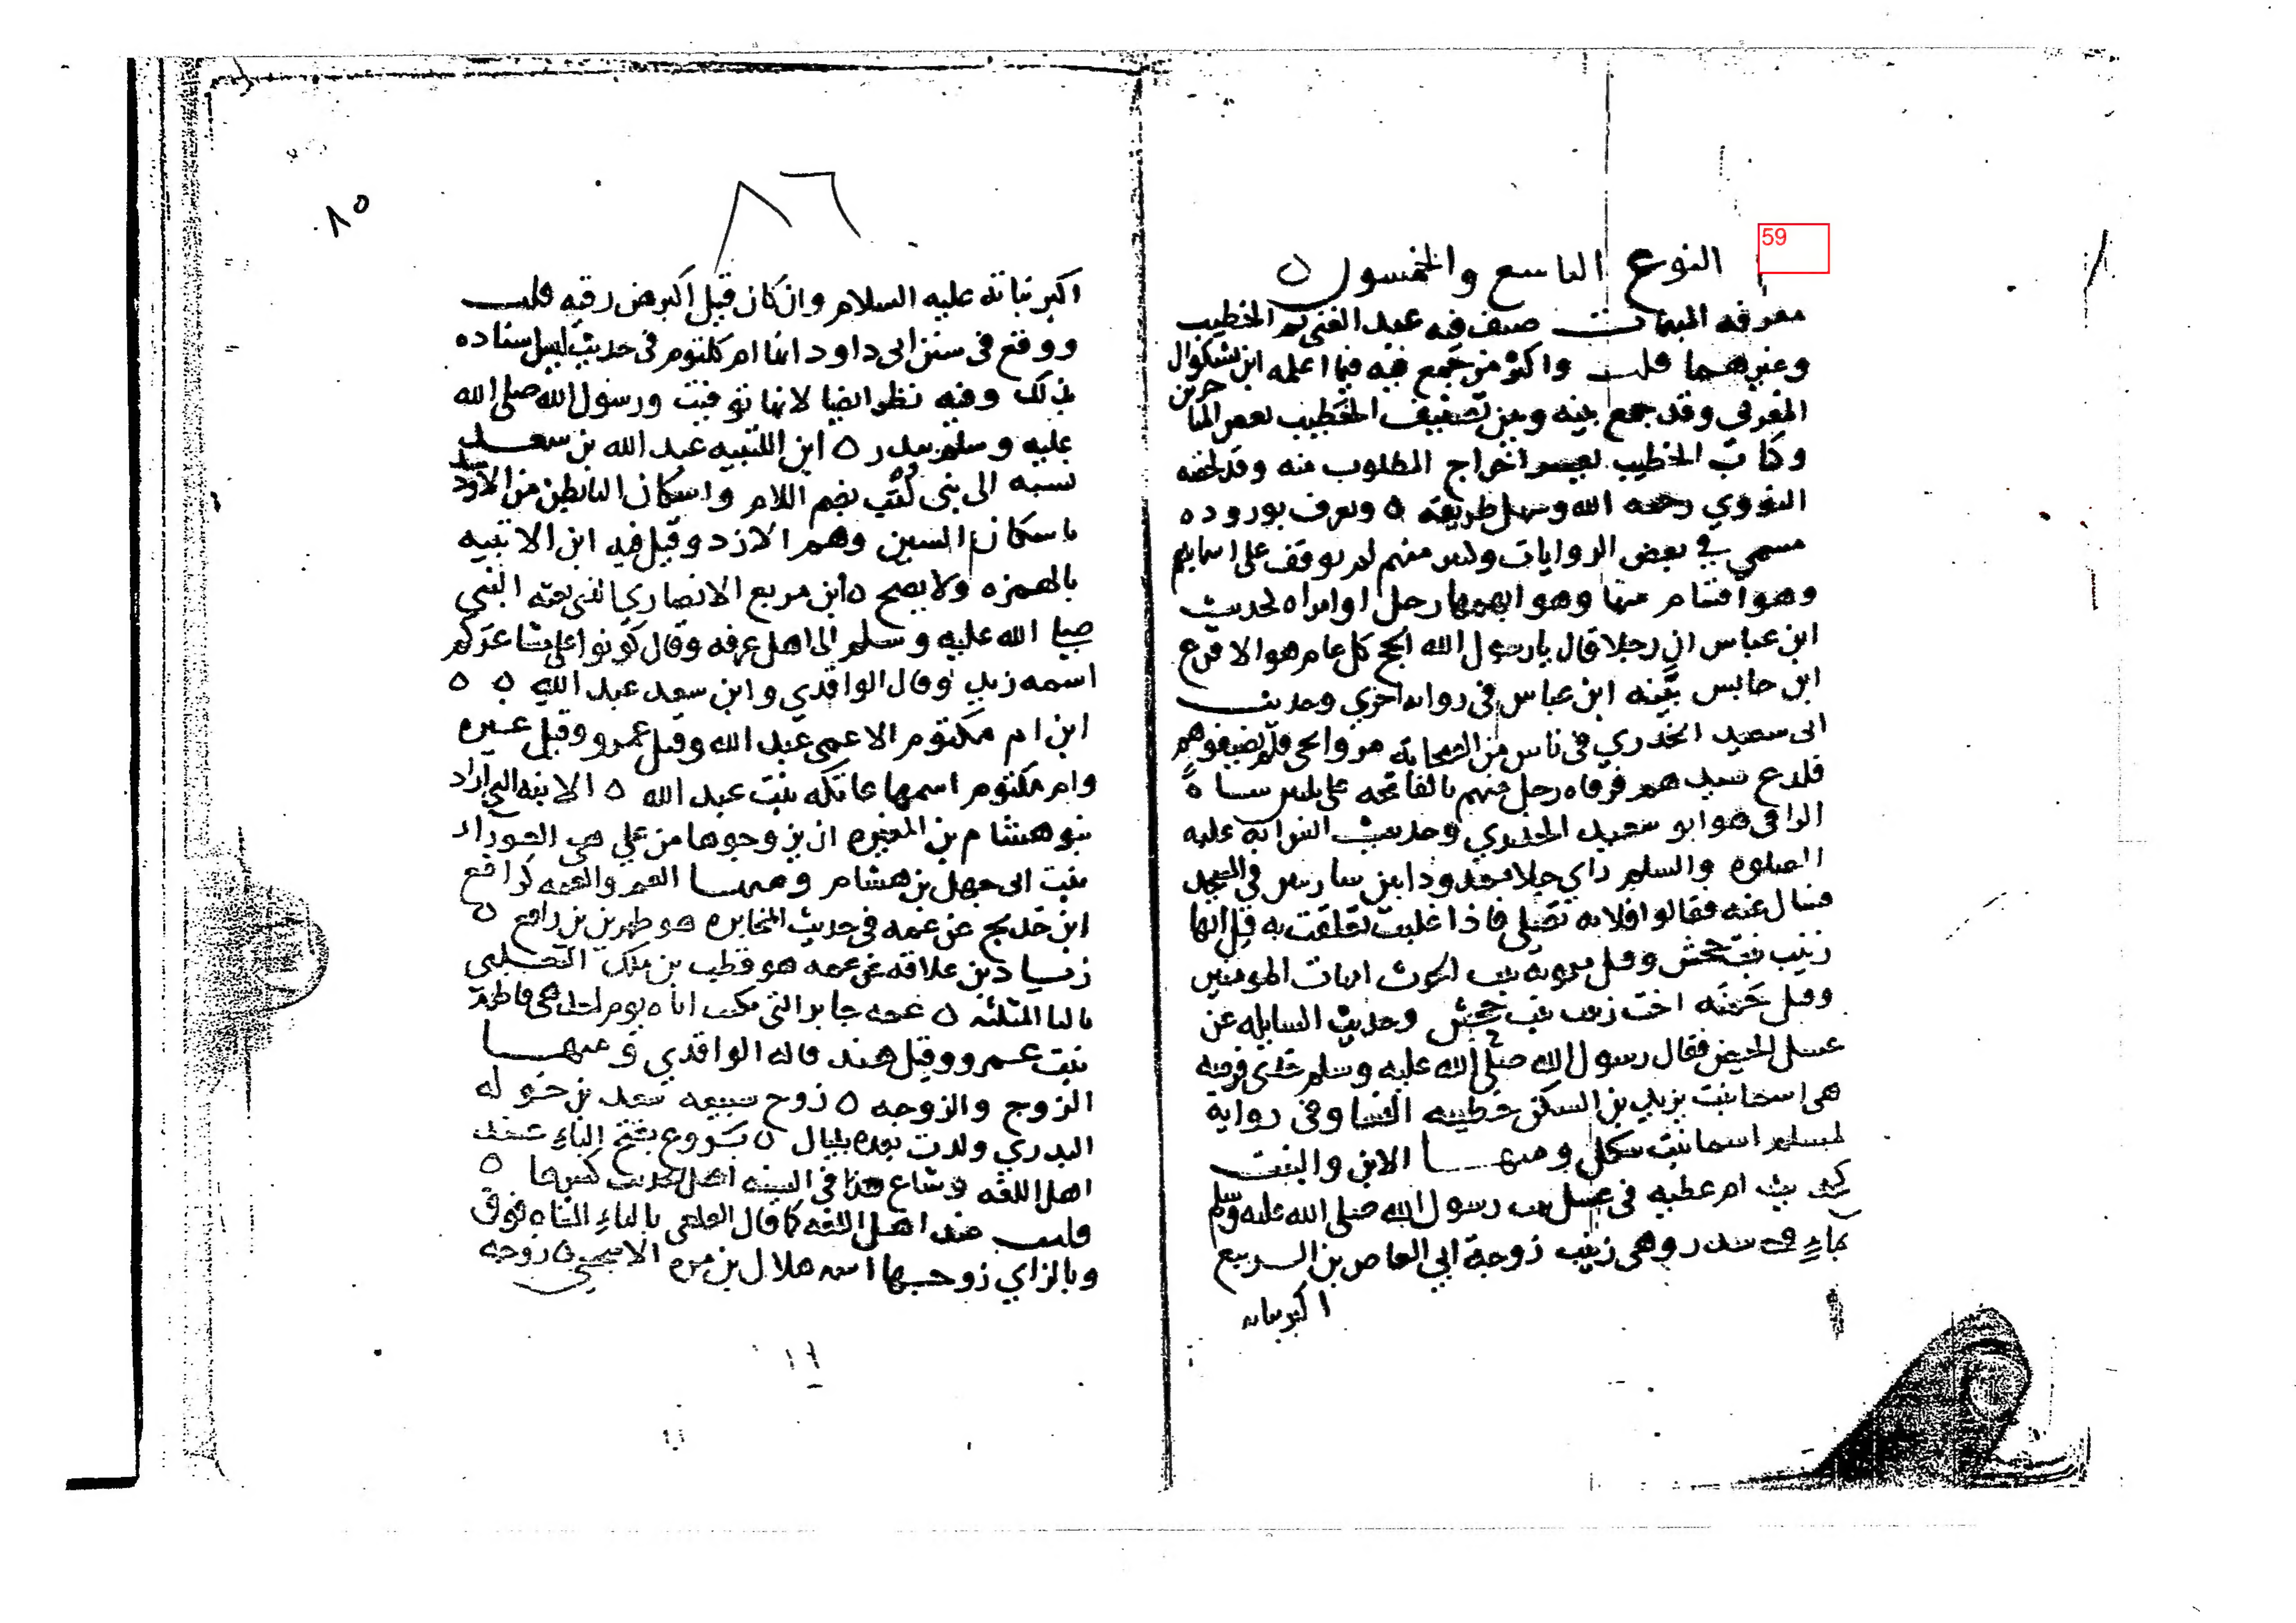 59
النوع التاسع والخمسون ٥
معرفه المبهمات صنف فيه عبد الغنى ثم الخطيب
وغيرهما قلت واكثر من جمع فيه فيما اعلمه ابن بشكوال
المغربي وقد جمع بينه وبين تصنيف الخطيب بعض المتاخرين
وكتاب الخطيب يعسر اخراج المطلوب منه وقد لخصه
النووي رحمه الله وسهل طريقه ٥ ويعرف بوروده
مسمي في بعض الروايات وكثير منهم لم يوقف على اسمايهم
وهو اقسام منها وهو ابهمها رجل او امراه لحديث
ابن عباس ان رجلا قال يا رسول الله الحج كل عام هو الاقرع
ابن حابس بينه ابن عباس في روايه اخري وحديث
ابى سعيد الخدري في ناس من الصحابه مروا بحي فلم يضيفوهم
فلدغ سيدهم فرقاه رجل منهم بالفاتحه على ثلثين شاة
الراقى هو ابو سعيد الخدري وحديث انس انه عليه
الصلوه والسلم راي حبلا ممدودا بين ساريتين في المسجد
فسال عنه فقالوا فلانه تصلى فاذا غلبت تعلقت به قيل انها
زينب بنت جحش وقيل ميمونه بنت الحرث ام المومنين
وقيل حمنه اخت زينب بنت جحش وحديث السايله عن
غسل الحيض فقال رسول الله صلى الله عليه وسلم خذى فرصه
هى اسما بنت يزيد بن السكن خطيبه النسا وفى رواية
لمسلم اسما بنت شكل ومنها الابن والبنت
كحديث ام عطيه فى غسل بنت رسول الله صلى الله عليه وسلم
بماء وسدر وهى زينب زوجة ابي العاص بن الربيع
اكبر بناته
٨٦
٨٥
اكبر بناته عليه السلام وان كان قيل اكبرهن رقيه قلت
ووقع في سنن ابى داود انها ام كلثوم فى حديث ليس اسناده
بذلك وفيه نظر ايضا لانها توفيت ورسول الله صلى الله
عليه وسلم ببدر ٥ ابن اللتبيه عبد الله بن سعد
نسبه الى بنى لتب بضم اللام واسكان التا بطن من الاسد
باسكان السين وهم الازد وقيل فيه ابن الاتبيه
بالهمزه ولا يصح ٥ ابن مربع الانصاري الذى بعثه النبي
صلى الله عليه وسلم الى اهل عرفه وقال كونوا على مشاعركم
اسمه زيد وقال الواقدي وابن سعد عبد الله ٥ ٥
ابن ام مكتوم الاعمى عبد الله وقيل عمرو وقيل غيره
وام مكتوم اسمها عاتكه بنت عبد الله ٥ الابنه التى اراد
بنو هشام بن المغيره ان يزوجوها من علي هى العوراء
بنت ابى جهل بن هشام ومنها العم والعمه كرافع
ابن خديج عن عمه فى حديث المخابره هو ظهير بن رافع ٥
زياد بن علاقه عن عمه هو قطبه بن ملك الثعلبي
بالثا المثلثه ٥ عمه جابر التى بكت اباه يوم احد هى فاطمة
بنت عمرو وقيل هند قاله الواقدي ومنها
الزوج والزوجه ٥ زوج سبيعه سعد بن خوله
البدري ولدت بعده بليال ٥ بروع بفتح الباء عند
اهل اللغه وشاع هذا في السنه اهل الحديث كسرها ٥
قلت عند اهل اللغه كما قال القلعى بالتاء المثناه فوق
وبالزاي زوجها اسمه هلال بن مره الاشجعي ٥ زوجه